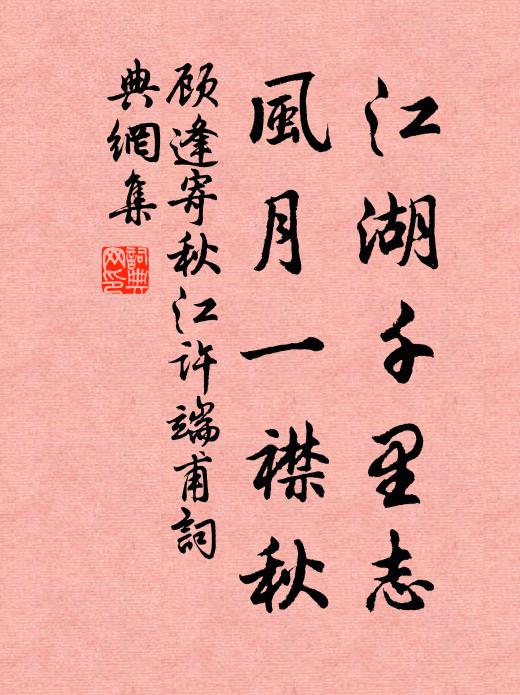 江湖千里志
風月一襟秋
顾逢寄秋江许端甫詞
典網集
詞典
网印